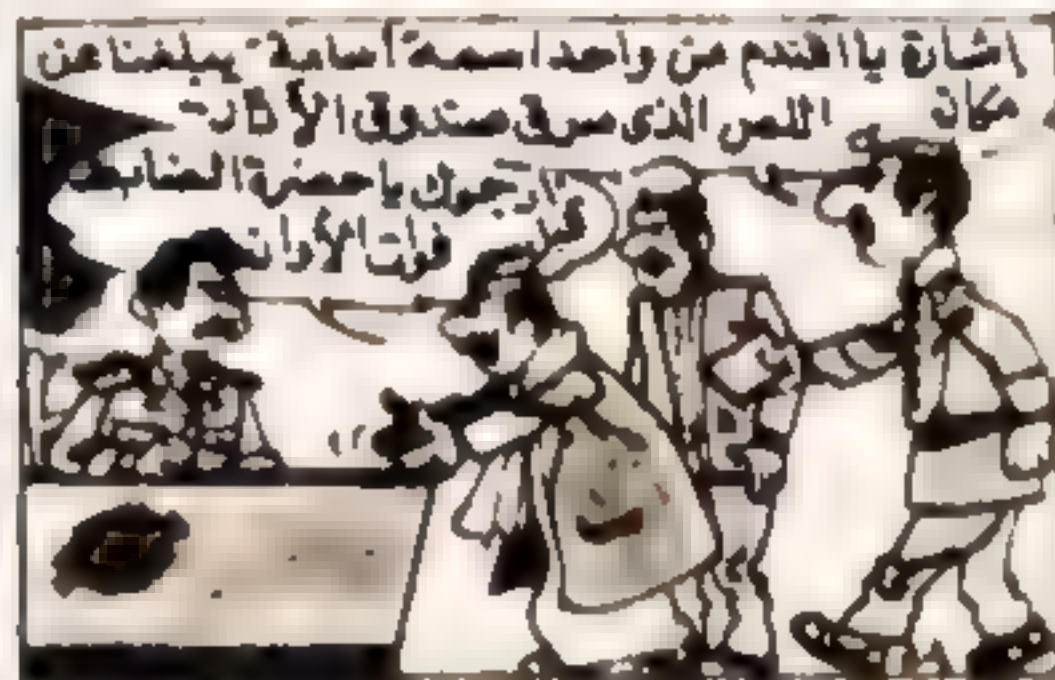 إشارة يا افندم من واحد اسمه أسامة يبلغنا عن
مكان اللص الذى سرق صندوق الآثار
أرجوك يا حضرة الضابط
قبل فوات الأوان